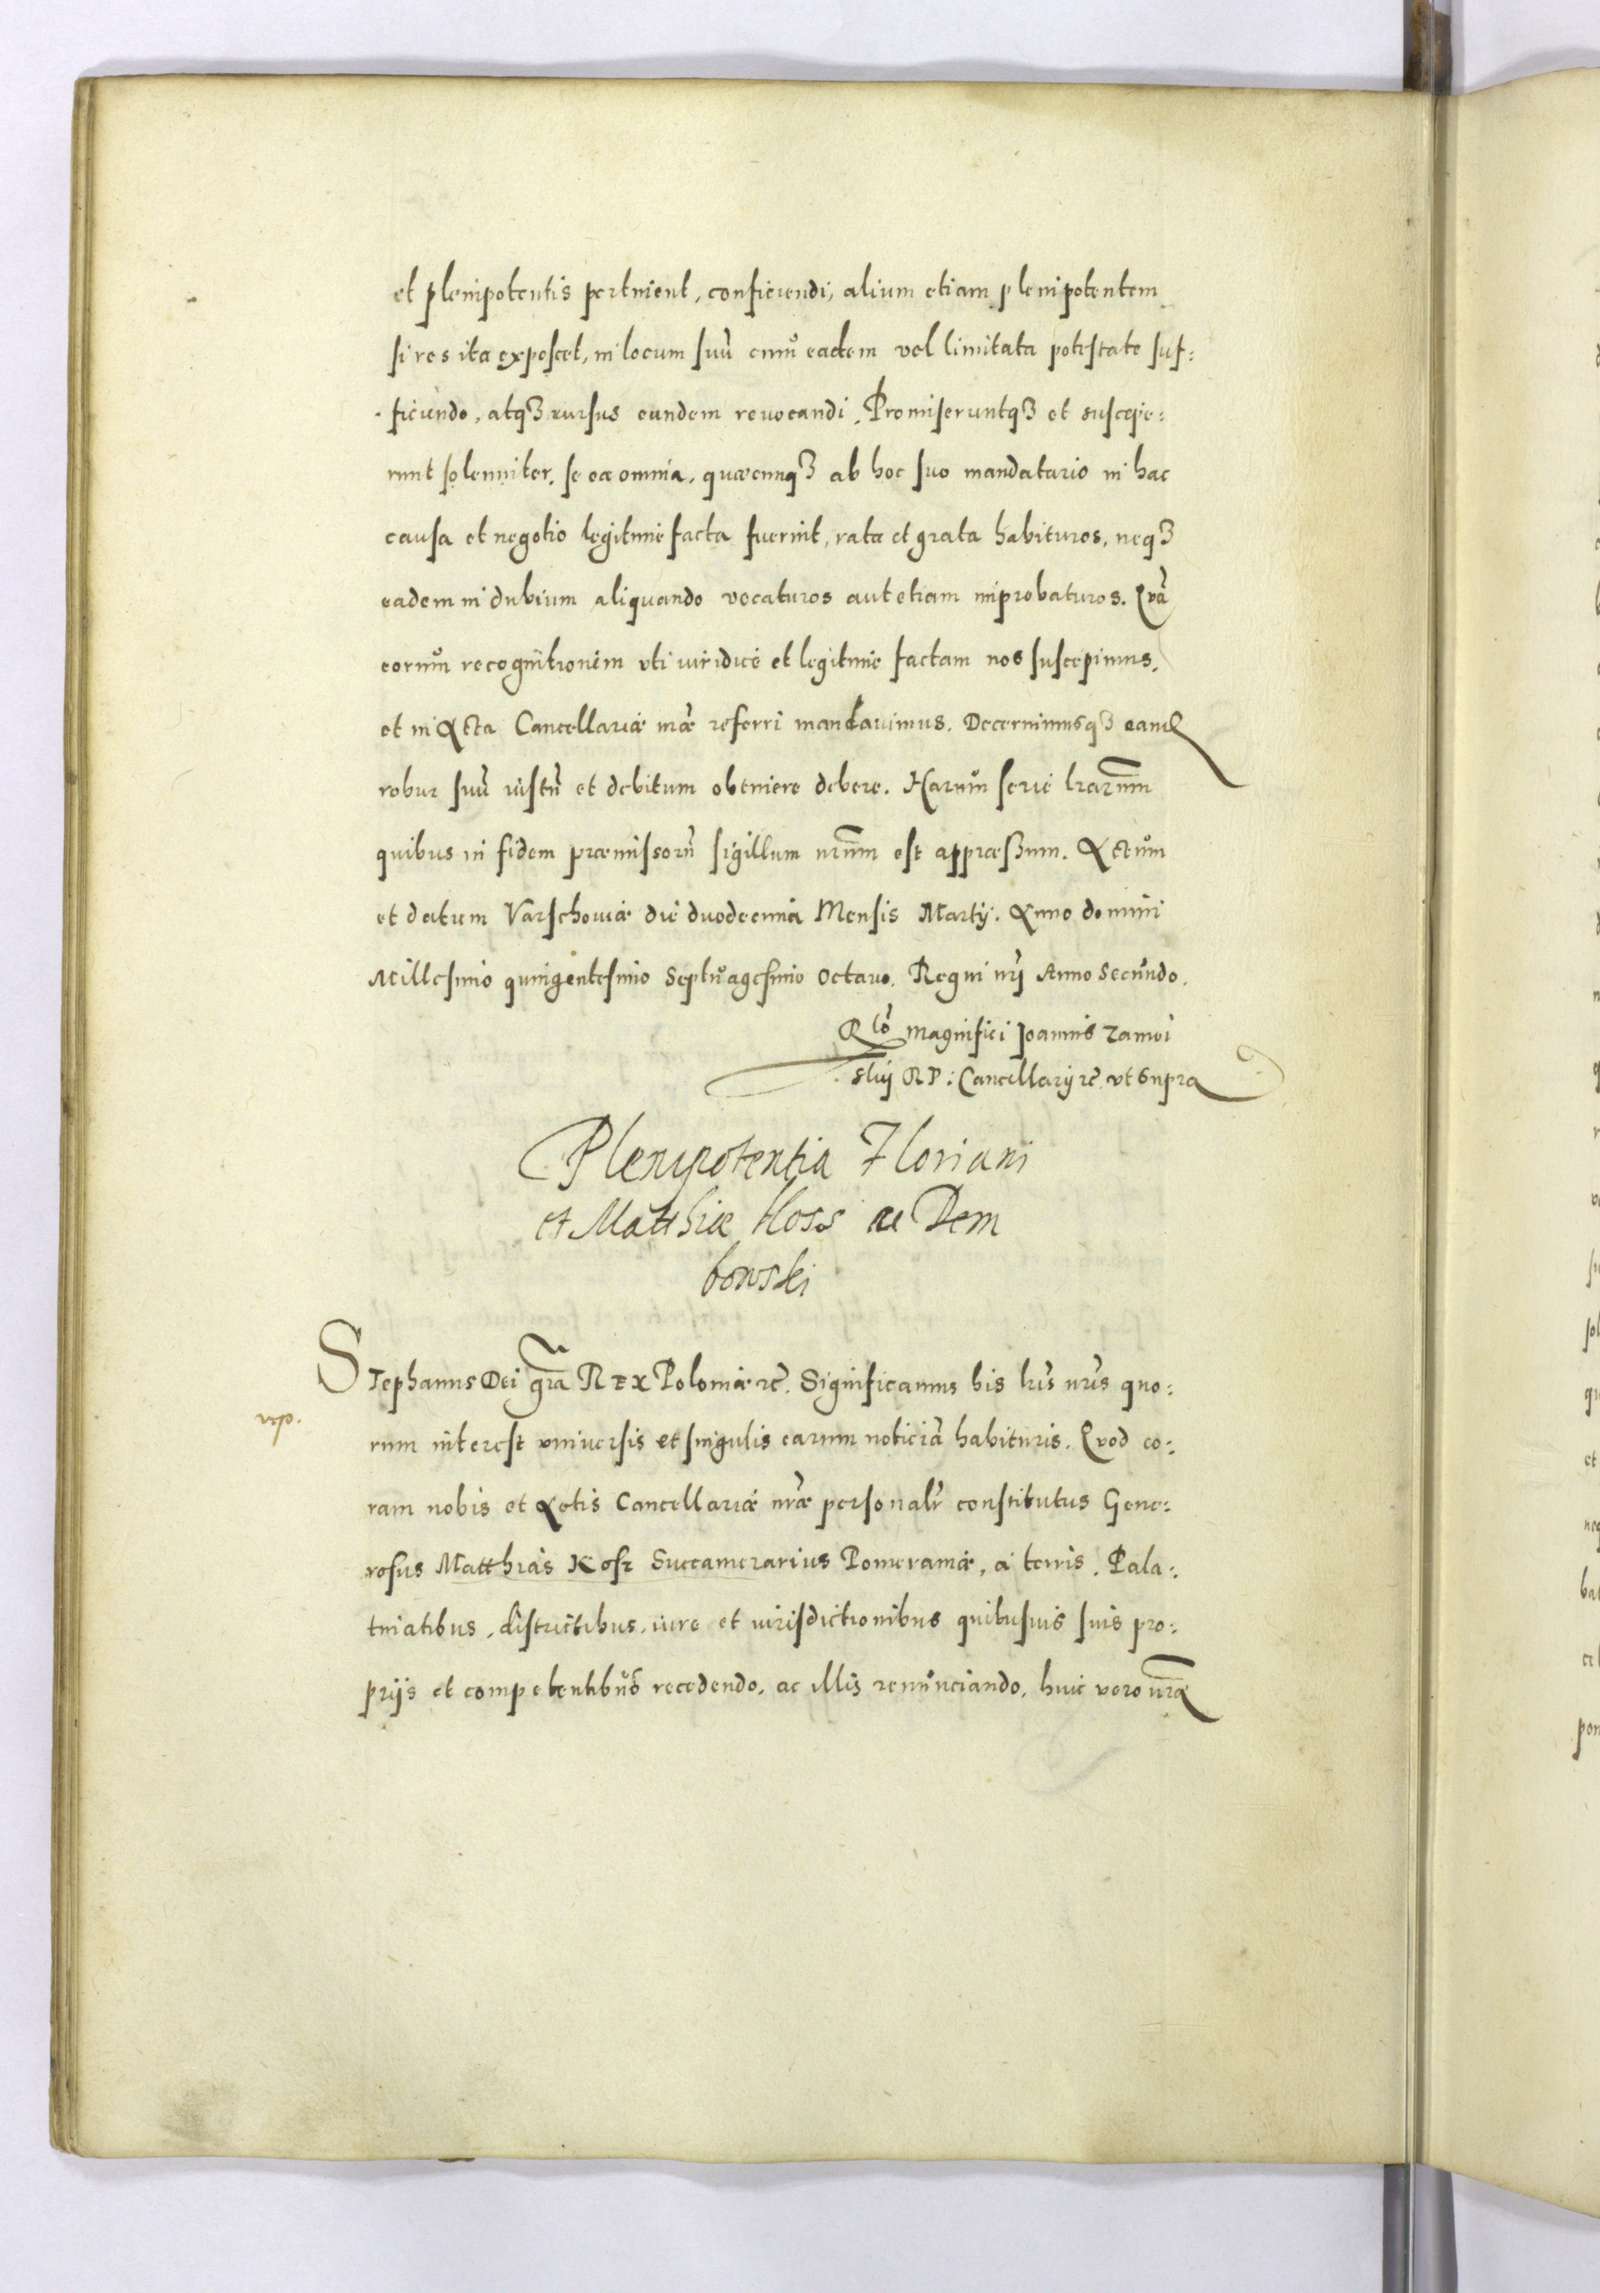 et plenipotentis pertinent, conficiendi, alium etiam plenipotentem
si res ita exposcet, in locum suū cum eadem vel limitata potestate suf:
ficiendo, atqꝫ rursus eundem reuocandi. Promiseruntqꝫ et suscepe:
runt solenniter, se ea omnia, quæcunqꝫ ab hoc suo mandatario in hac
causa et negotio legitime facta fuerint, rata et grata habituros, neqꝫ
eadem in dubium aliquando vocaturos aut etiam improbaturos. Qvā
eorum recognitionem vti iuridice et legitime factam nos suscepimus,
et in Acta Cancellariæ nræ referri mandauimus. Decernimusqꝫ eand
robur suū iustū et debitum obtinere debere. Harum serie lrarum
quibus in fidem præmissorū sigillum nrum est appræssum. Actum
et datum Varschouiæ die duodecima Mensis Martij. Anno domini
Millesimo quingentesimo Septuagesimo Octauo. Regni nri Anno Secundo.
Rlō Magnifici Joannis Zamoi
skij RP: Cancellarij rc̄ vt supra
Plenipotentia Floriani
et Matthiæ Koss ac Dem
bowski
Stephanus Dei gra REX Poloniæ rc̄. Significamus his lris nris quo:
rum interest vniuersis et singulis earum noticiā habituris. Qvod co:
ram nobis et Actis Cancellariæ nræ personalr constitutus Gene:
rosus Matthias Kosz Succamerarius Pomeraniæ, a terris, Pala:
tinatibus, districtibus, iure et iurisdictionibus quibusuis suis pro:
prijs et competentibus recedendo, ac illis renunciando, huic vero nra